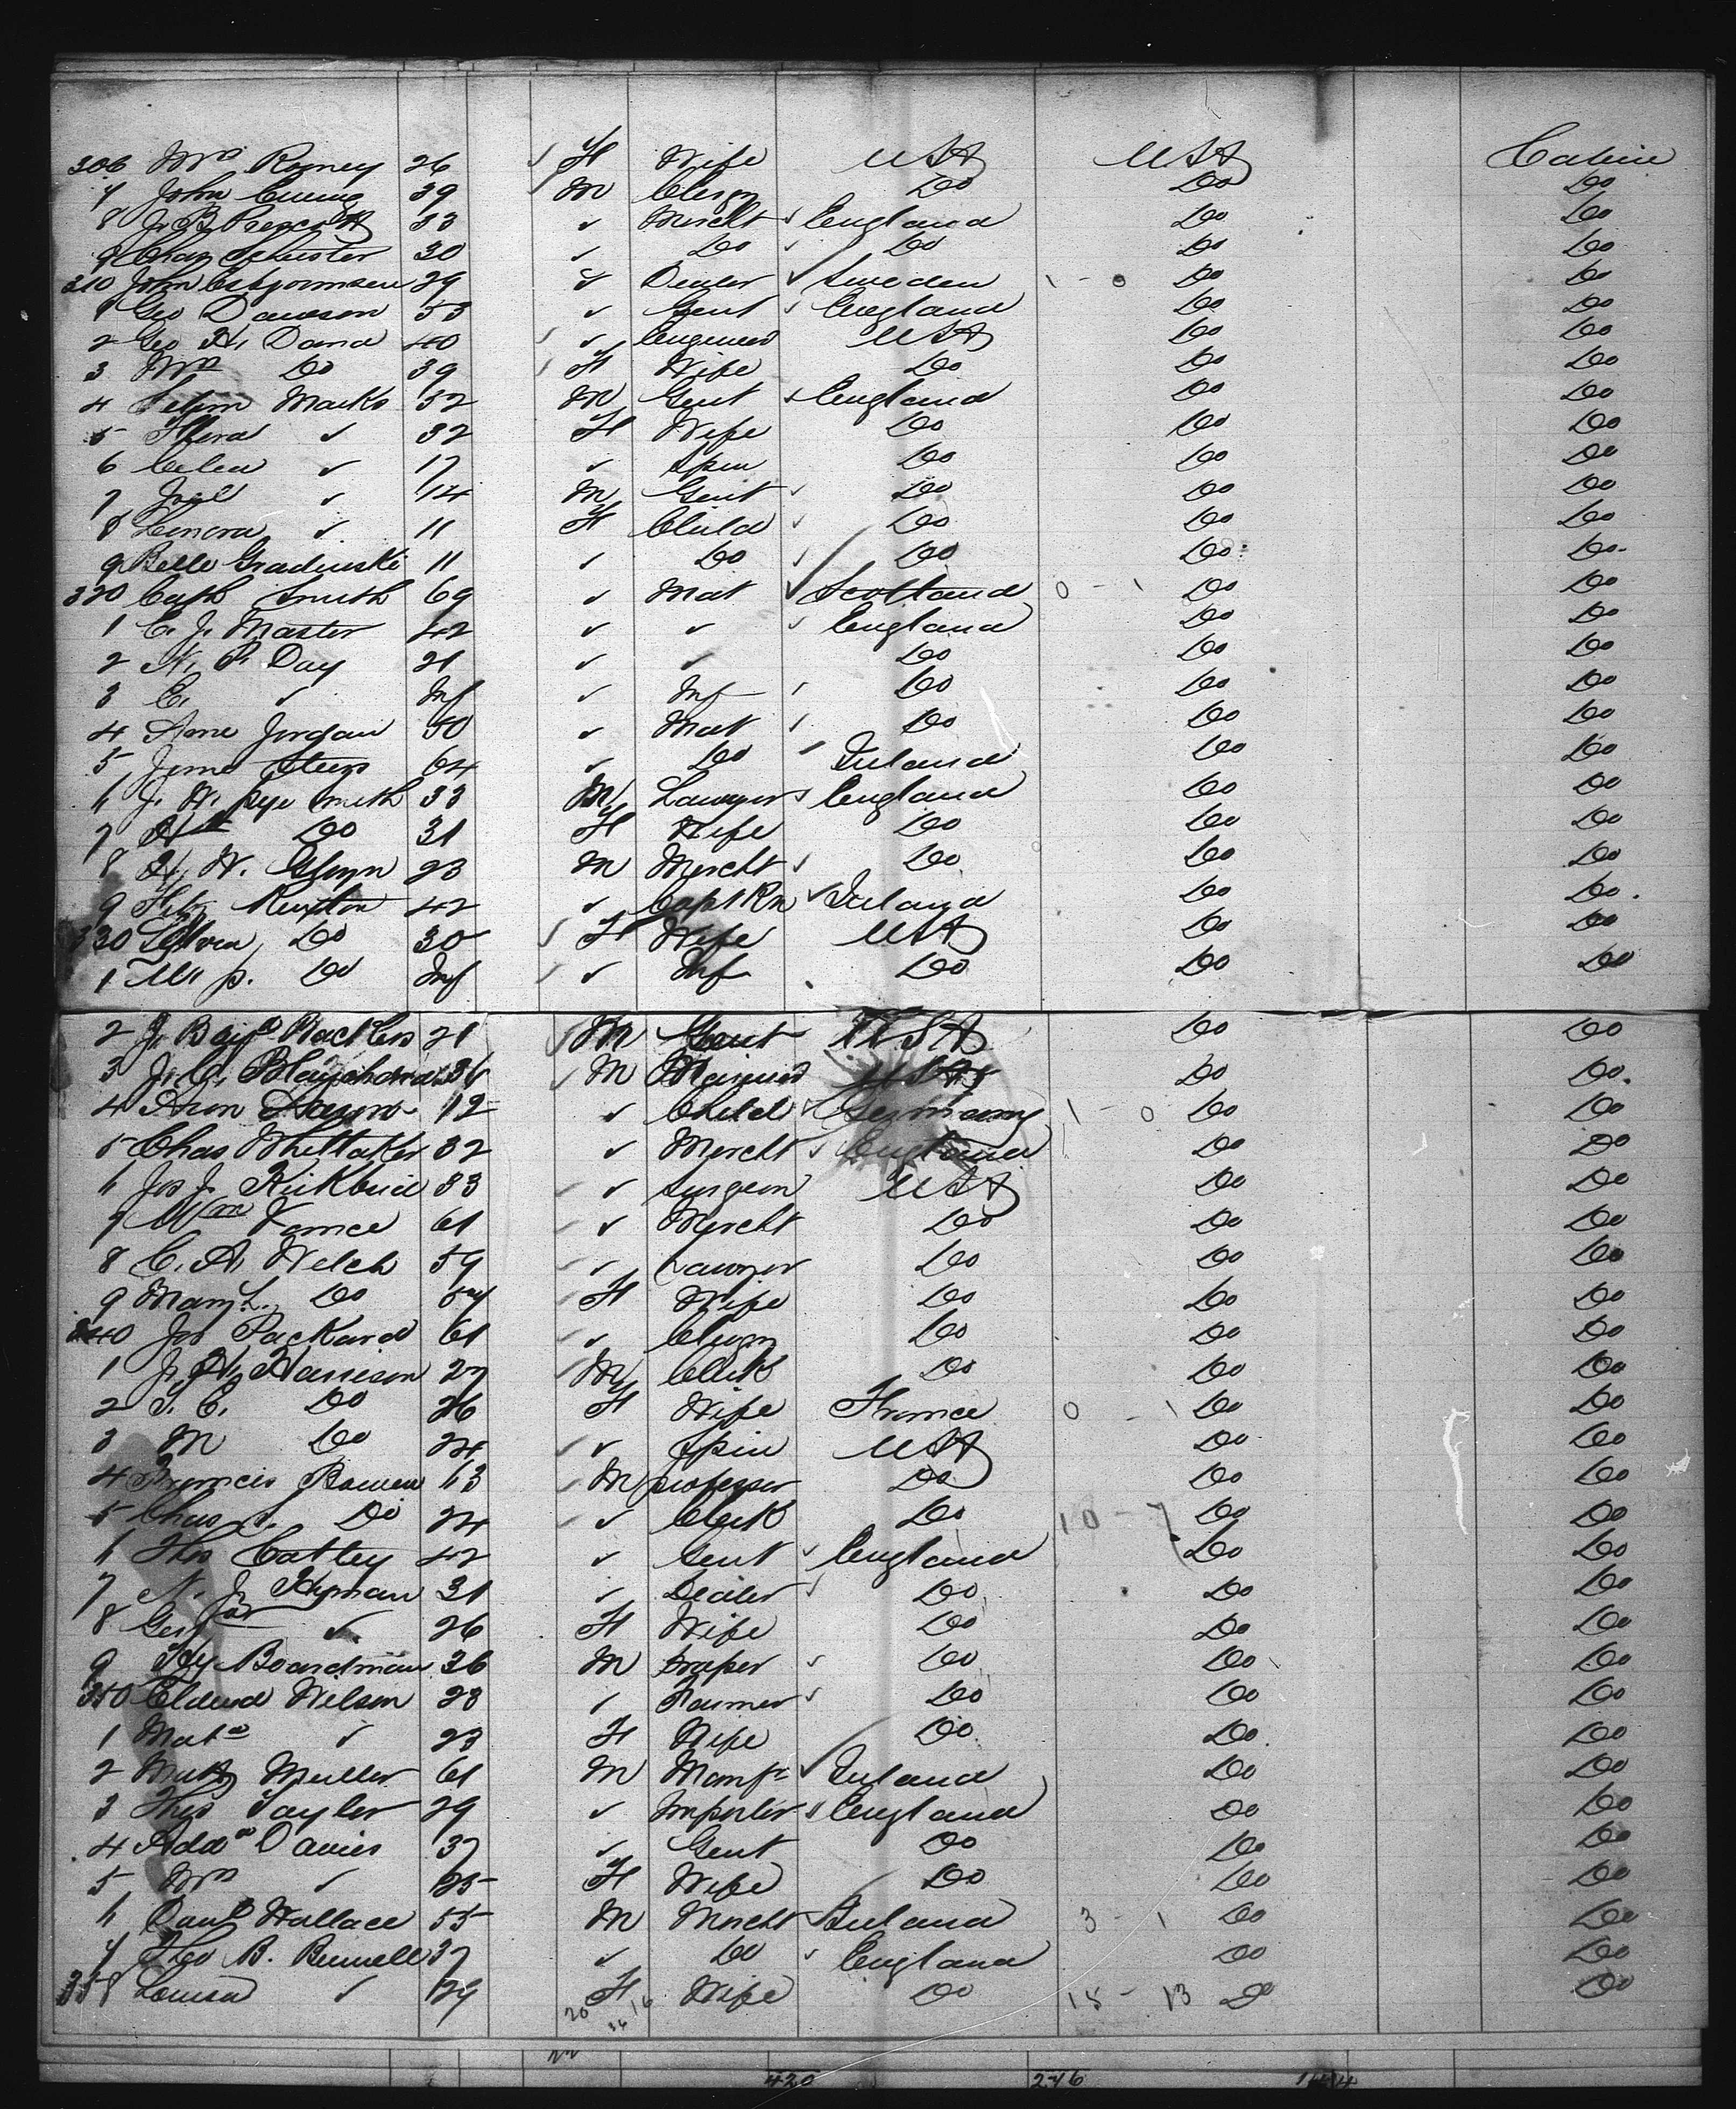 306 Mrs Roney 26 ✓ F Wife USA USA Cabin
7 John Ewing 39 M Clergy Do Do Do
8 J. B. Prescott 33 ✓ Mercht ✓ England Do Do
9 Chas Schuster 30 ✓ Do ✓ Do Do Do
310 John Esbjornsen 29 ✓ Dealer ✓ Sweden 1 - 0 Do Do
1 Geo Dawson 53 ✓ Gent ✓ England Do Do
2 Geo H. Dana 40 ✓ Engineer USA Do Do
3 Mrs Do 39 F Wife Do Do Do
4 Marks 52 M Gent ✓ England Do Do
5 Flora ✓ 32 F Wife Do Do Do
6 Celea ✓ 17 ✓ Spin Do Do Do
7 Joel ✓ 14 M Gent ✓ Do Do Do
8 Lenora ✓ 11 F Child ✓ Do Do Do
9 Belle Gradinski 11 ✓ Do ✓ Do Do Do
320 Cath Smith 69 ✓ Mat ✓ Scotland 0 - 1 Do Do
1 C. J. Master 42 ✓ ✓ ✓ England Do Do
2 H. P. Day 21 ✓ ✓ Do Do Do
3 E. ✓ Inf ✓ Inf ✓ Do Do Do
4 Anne Jordan 50 ✓ Mat ✓ Do Do Do
5 Jane Steys 64 ✓ Do ✓ Ireland Do Do
6 J. W. Pye Smith 33 M Lawyer ✓ England Do Do
7 Do 31 F Wife Do Do Do
8 H. W. Glynn 23 M Mercht ✓ Do Do Do
9 42 ✓ Capt RN ✓ Ireland Do Do
330 Do 30 ✓ F Wife USA Do Do
1 M. p. Do Inf ✓ ✓ Inf Do Do Do
2 J. Bayd Rackless 21 ✓ M Gent USA Do Do
3 J. C. Blanchard 36 ✓ M USA Do Do
4 Aron 12 ✓ Child ✓ Germany 1 - 0 Do Do
5 Chas Whittaker 32 ✓ Mercht ✓ England Do Do
6 Jos J. Kirkbride 33 ✓ Surgeon USA Do Do
7 Wm Vance 61 ✓ Mercht Do Do Do
8 C. A. Welch 59 ✓ Lawyer Do Do Do
9 Mary L. Do 57 F Wife Do Do Do
340 Jos Packard 61 ✓ Clergy Do Do Do
1 J. H. Harrison 27 M Clerk Do Do Do
2 T. C. Do 26 F Wife France 0 - 1 Do Do
3 M Do 24 ✓ Spin USA Do Do
4 Francis Bowen 63 M professor Do Do Do
5 Chas S. Do 24 ✓ Clerk Do 10 - 7 Do Do
6 Thos Catley 42 ✓ Gent ✓ England Do Do
7 N. J. Hyman 31 ✓ Dealer ✓ Do Do Do
8 ✓ 26 F Wife Do Do Do
9 Hy Boardman 36 M Draper ✓ Do Do Do
350 Edward Wilson 23 ✓ Farmer ✓ Do Do Do
1 Mata ✓ 23 F Wife Do Do Do
2 Matt Muller 61 M Manfr ✓ Ireland Do Do
3 Thos Taylor 29 ✓ Importer ✓ England Do Do
4 Addn Davies 37 ✓ Gent Do Do Do
5 Mrs ✓ 25 F Wife Do Do Do
6 Danl Wallace 55 M Mercht ✓ Ireland 3 - 1 Do Do
7 Theo B. Bunnell 37 ✓ Do ✓ England Do Do
358 Louisa ✓ 29 F Wife Do 15 - 13 Do Do
20 16
36
22
420 246 144